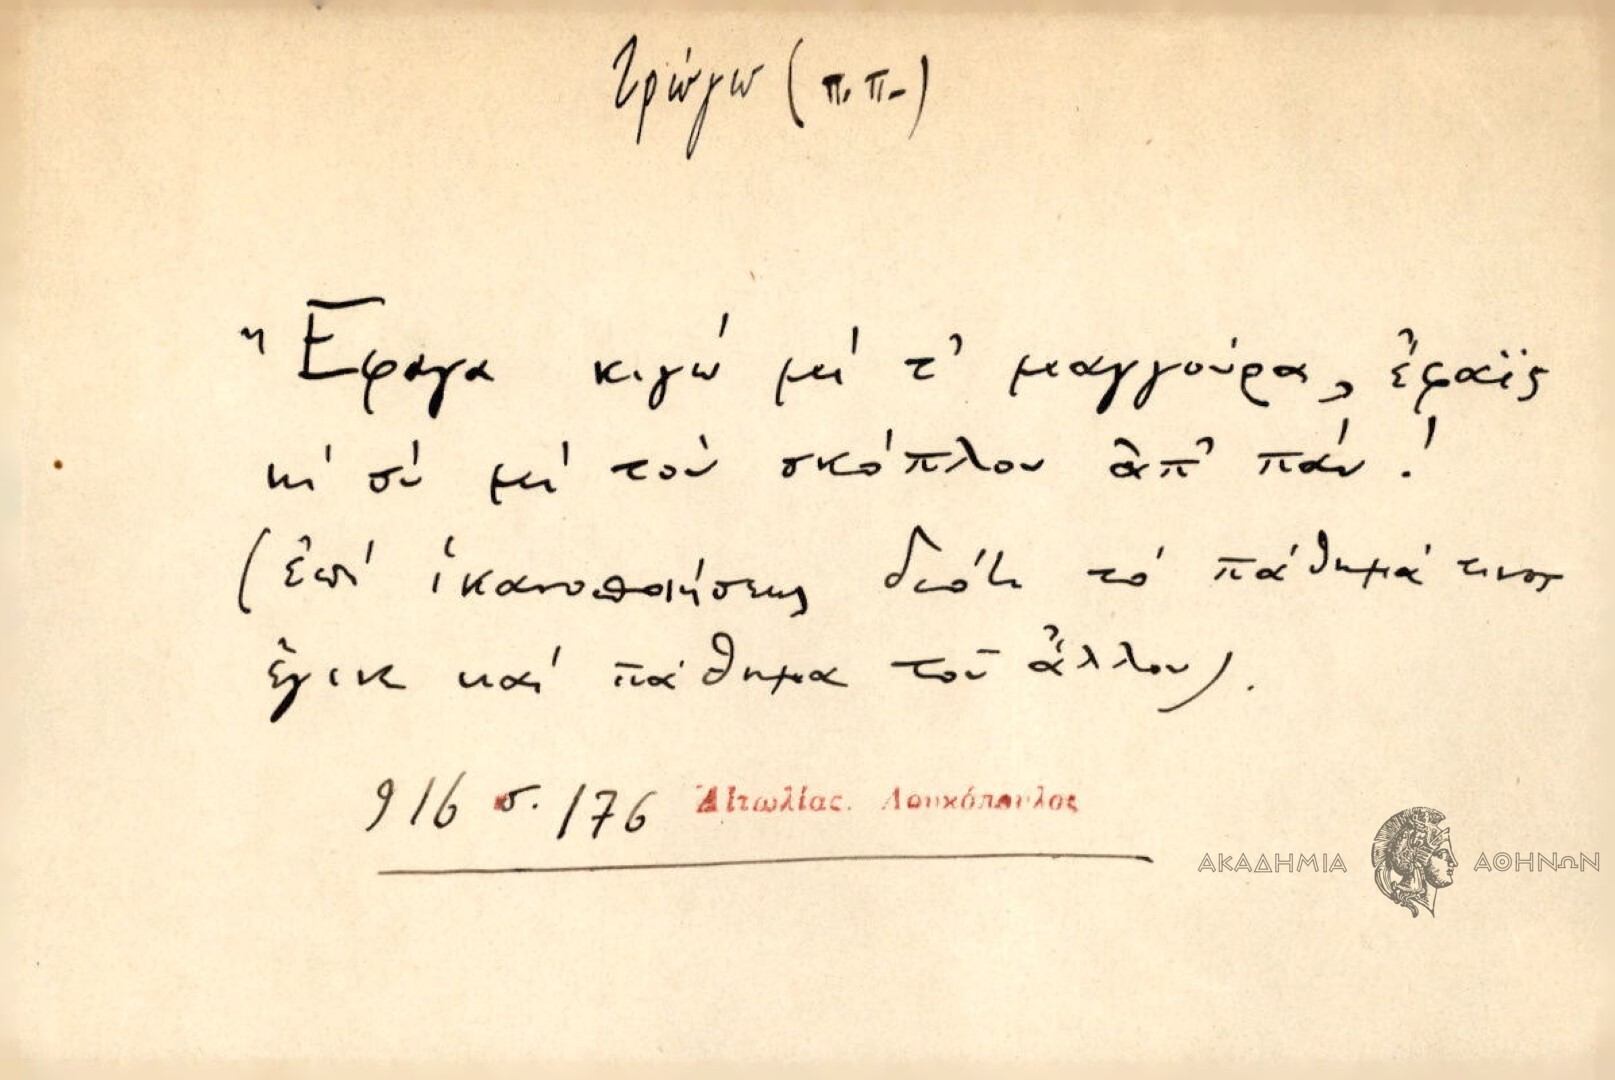 τρώγω (π.π.)
Ἔφαγα κιγώ μέ τ' μαγγούρα, ἔφαϊς
κί σύ μέ τού σκόπλου ἀπ' πάν'!
(ἐπί ἱκανοποιήσεως διότι τό πάθημά τινος
ἔγινε καί πάθημα τοῦ ἄλλου).
916 σ. 176 Αἰτωλίας. Λουκόπουλος
ΑΚΑΔΗΜΙΑ ΑΘΗΝΩΝ